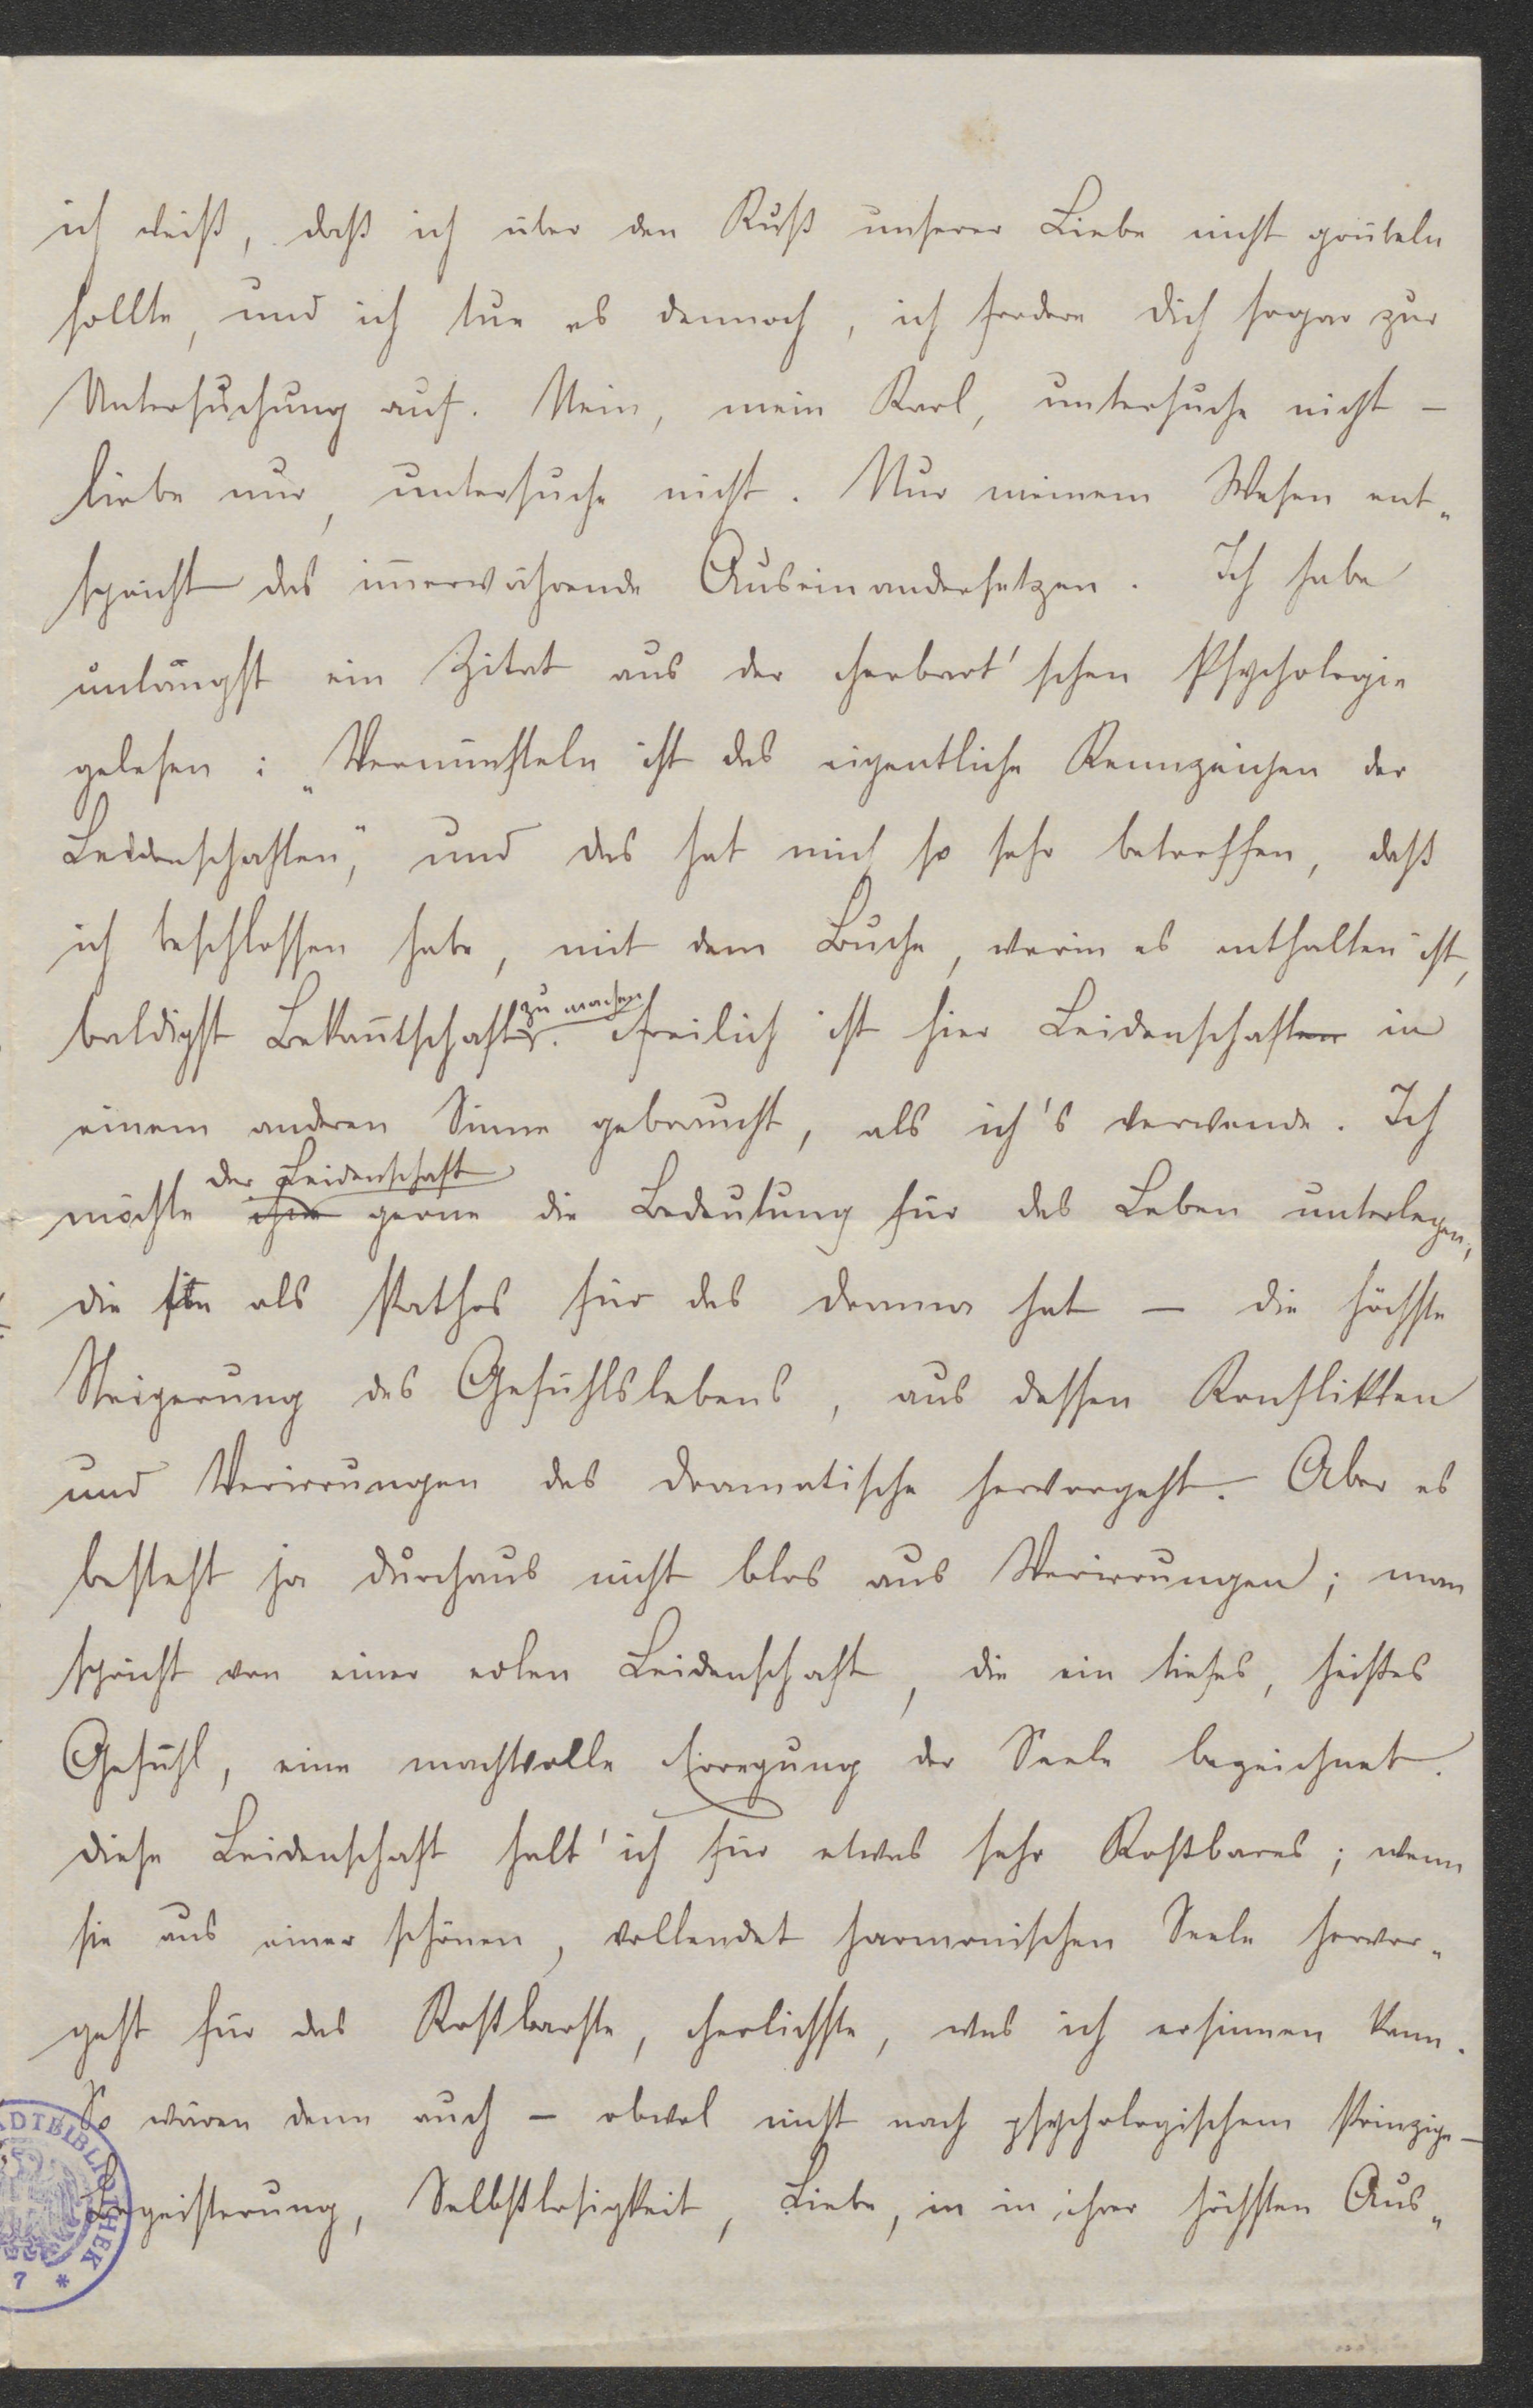 ich weiß, daß ich über den Kuß unserer Liebe nicht grübeln
sollte, und ich tue es dennoch, ich fordere dich sogar zur
Untersuchung auf. Nein, mein Karl, untersuche nicht –
liebe nur, untersuche nicht. Nur meinem Wesen ent„
spricht das im̅erwährende Auseinandersetzen. Ich habe
unlängst ein Zitat aus der Herbart'schen Psychologie
gelesen: „Vernünfteln ist das eigentliche Kennzeichen der
Leidenschaften“, und das hat mich so sehr betroffen, daß
ich beschlossen habe, mit dem Buche, worin es enthalten ist,
zu machen
baldigst Bekan̅tschaft. Freilich ist hier Leidenschaften in
einem anderen Sinne gebraucht, als ich's verwende. Ich
der Leidenschaft
möchte ihr gerne die Bedeutung für das Leben unterlegen,
die sie als Pathos für das Drama hat – die höchste
Steigerung des Gefühlslebens, aus dessen Konflikten
und Verirrungen das Dramatische hervorgeht. Aber es
besteht ja durchaus nicht blos aus Verirrungen; man
spricht von einer edlen Leidenschaft, die ein tiefes, heißes
Gefühl, eine machtvolle Erregung der Seele bezeichnet.
Diese Leidenschaft halt' ich für etwas sehr Kostbares; wenn
sie aus einer schönen, vollendet harmonischen Seele hervor„
geht für das Kostbarste, Herlichste, was ich ersinnen kann.
So wären denn auch – obwol nicht nach psychologischem Prinzipe –
Begeisterung, Selbstlosigkeit, Liebe, in in ihrer höchsten Aus„
ADTBIBLIOTHEK
7 *